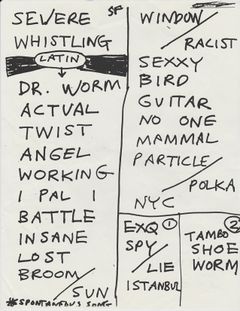 SF
SEVERE
WHISTLING
LATIN
DR. WORM
ACTUAL
TWIST
ANGEL
WORKING
I PAL I
BATTLE
INSANE
LOST
BROOM/
SUN
#SPONTANEOUS SONG
WINDOW/
RACIST
SEXXY
BIRD
GUITAR
NO ONE
MAMMAL
PARTICLE/
POLKA
NYC
EXQ 1
SPY/
LIE
ISTANBUL
2
TAMBO
SHOE
WORM